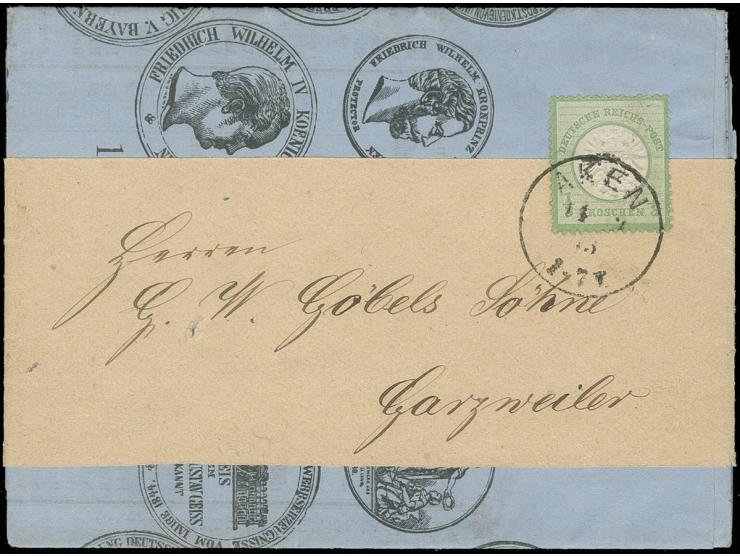 NIG. V. BAYERN
FRIEDRICH WILHELM IV KOENIG
FRIEDRICH WILHELM KRONPRINZ
PROTECTOR
1
DEUTSCHE REICHS-POST
GROSCHEN
AKEN
14
1-7 V.
Herren
G. W. Göbels Söhne
Garzweiler
GUSTAV GEISS
KANNT
WERBSERZEUGNISSE
VOM JAHRE 1844.